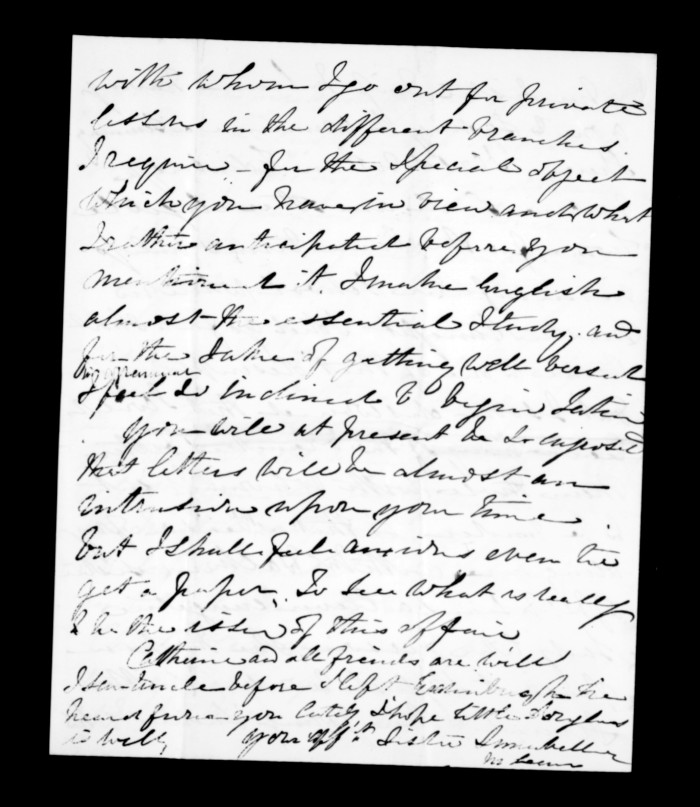 with whom I go out for private
lessons in the different branches
I require - for the special object
which you have in view and what
I rather anticipated before you
mentioned it. I make English
almost the essential Study, and
for the sake of getting well versed
in grammar
I feel so inclined to begin Latin
You will at present be so
that letters will be almost an
intrusion upon your time
but I shall feel anxious even to
get a paper, To see what is really
to be the issue of this affair
Catherine and all friends are well
I saw Uncle before I left Edinburgh he
heard from you lately, I hope little Douglas
is well, Your afft Sister Annabella
McLean